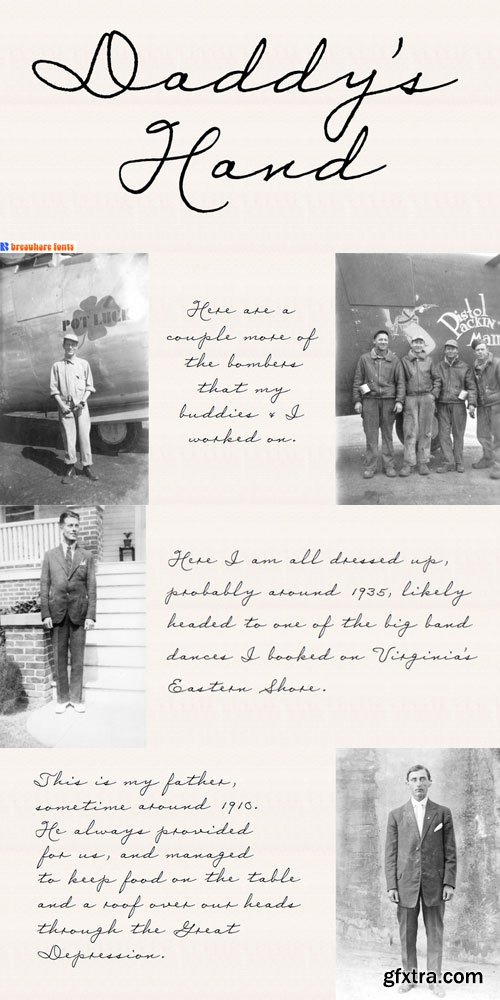 Daddy's
Hand
breauhare fonts
POT LUCK
Here are a
couple more of
the bombers
that my
buddies & I
worked on.
Pistol
Packin'
Mama
Here I am all dressed up,
probably around 1935, likely
headed to one of the big band
dances I booked on Virginia's
Eastern Shore.
This is my father,
sometime around 1910.
He always provided
for us, and managed
to keep food on the table
and a roof over our heads
through the Great
Depression.
gfxtra.com